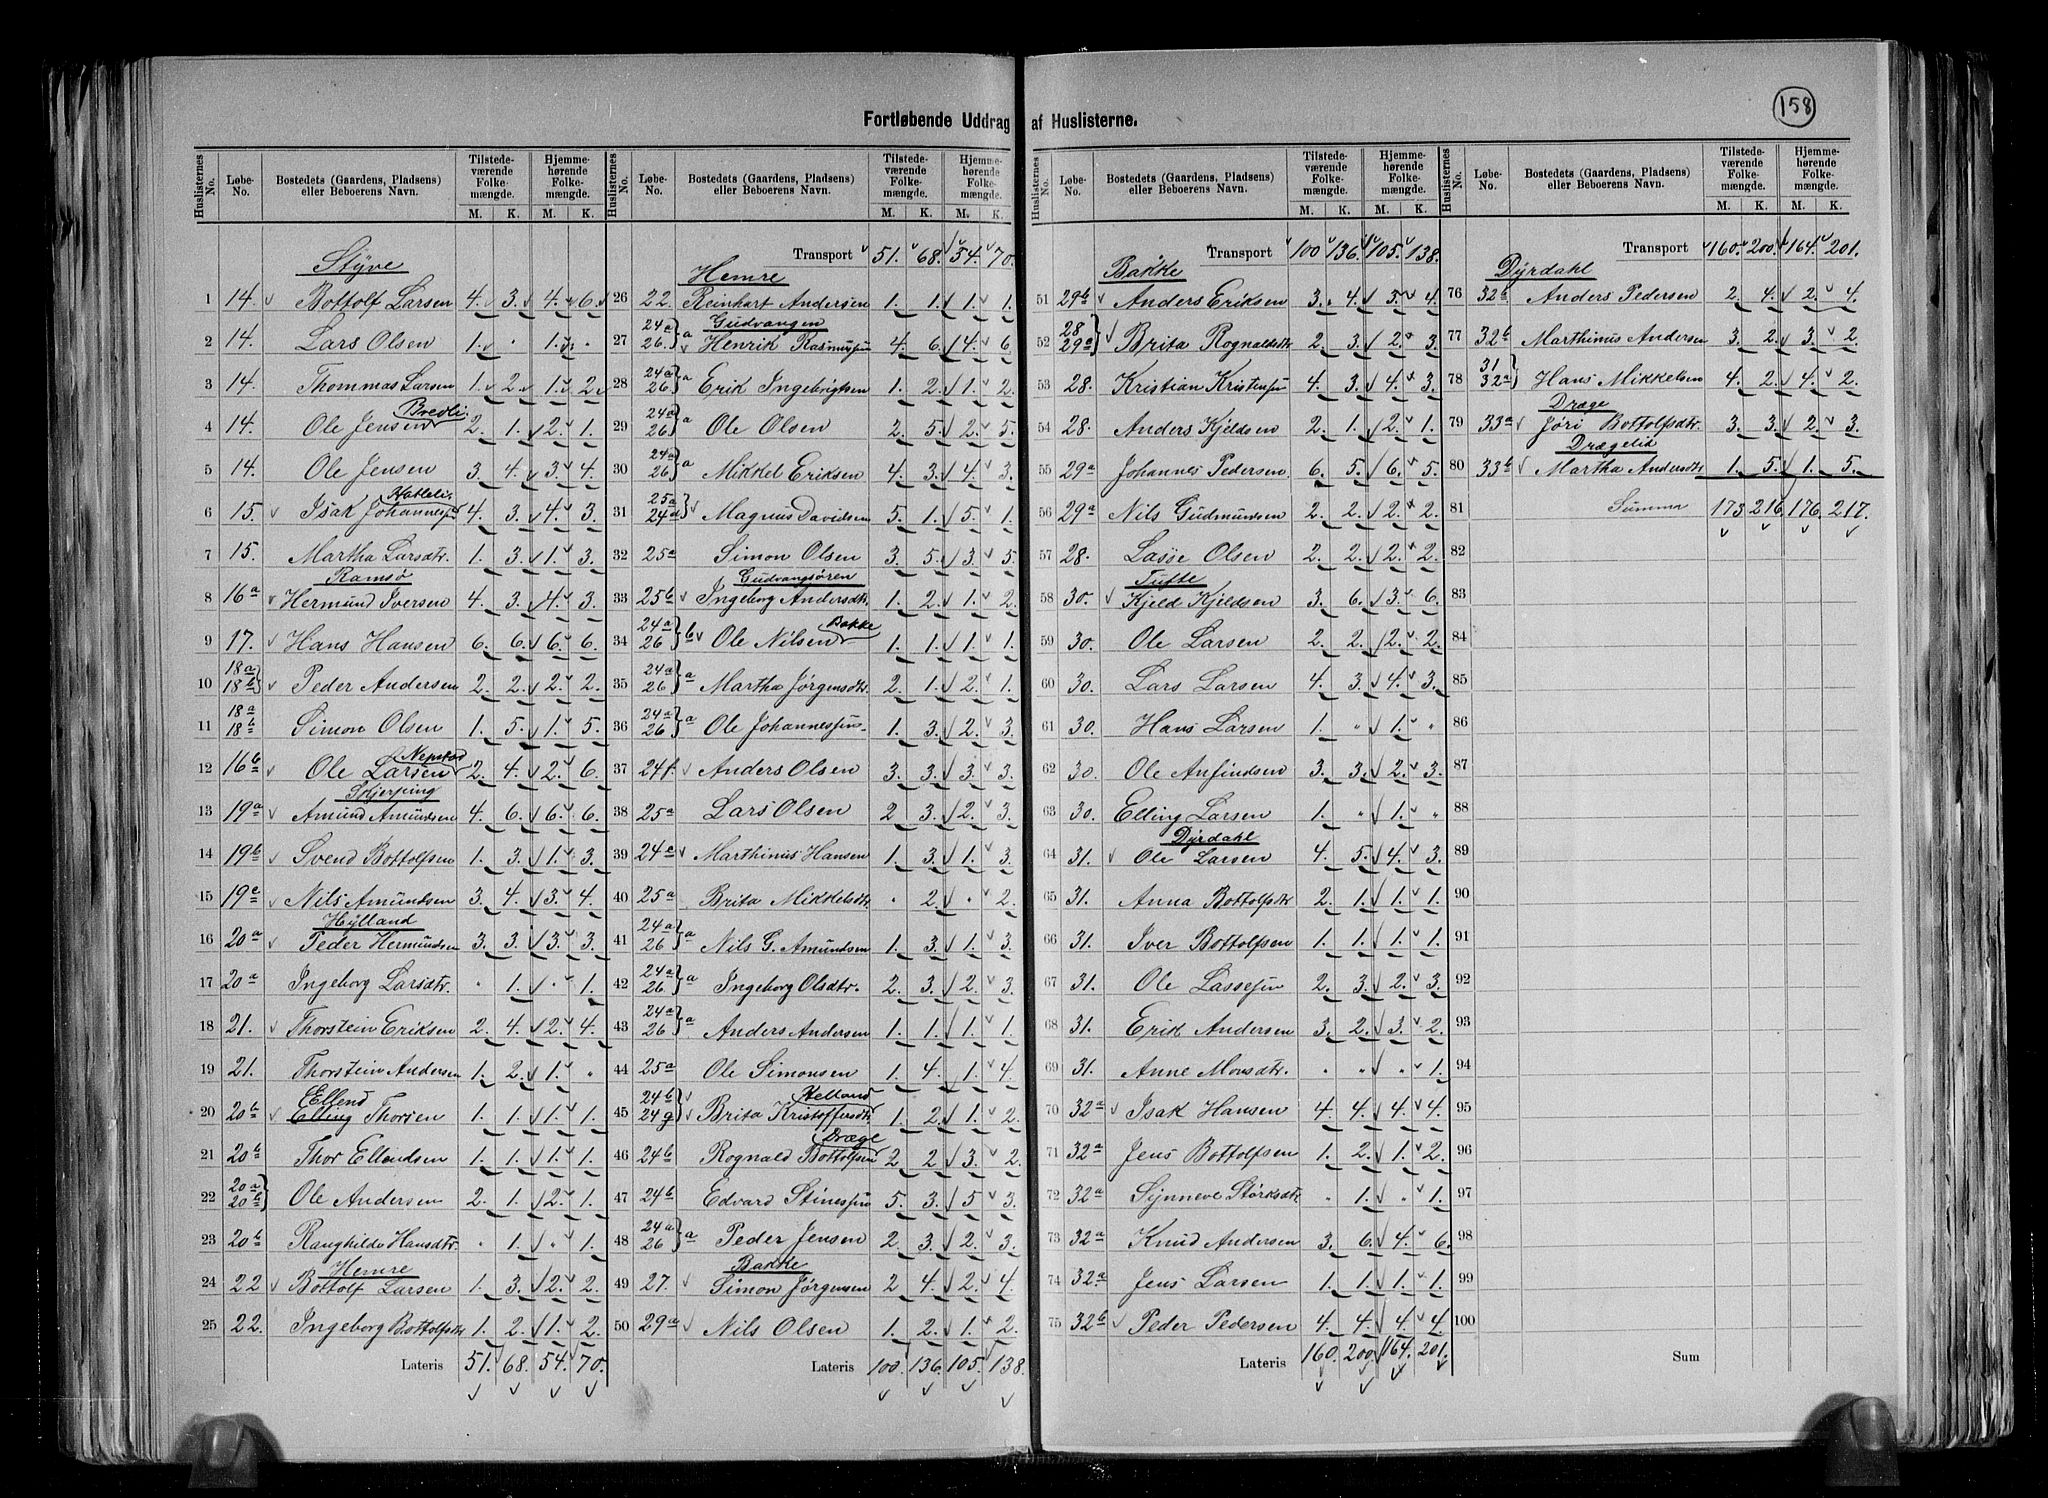 158
Fortløbende Uddrag af Huslisterne.
Huslisternes No. Løbe-No. Bostedets (Gaardens, Pladsens) eller Beboerens Navn. Tilstedeværende Folkemængde. M. K. Hjemmehørende Folkemængde. M. K.
Styve
1 14. Bottolf Larsen 4. 3. 4. 6.
2 14. Lars Olsen 1. " 1. "
3 14. Thommas Larsen 1. 2. 1. 2.
4 14. Ole Jensen Bredli. 2. 1. 2. 1.
5 14. Ole Jensen 3. 4. 3. 4.
6 15. Isak Johannessen Hatleli. 4. 3. 4. 3.
7 15. Martha Larsdtr. 1. 3. 1. 3.
Ramsø
8 16a Hermund Iversen 4. 3. 4. 3.
9 17. Hans Hansen 6. 6. 6. 6.
10 18a 18b } Peder Andersen 2. 2. 2. 2.
11 18a 18b Simon Olsen 1. 5. 1. 5.
12 16b Ole Larsen 2. 4. 2. 6.
Skjerping
13 19a Amund Amundsen 4. 6. 6. 6.
14 19b Svend Bottolfsen 1. 3. 1. 3.
15 19c Nils Amundsen 3. 4. 3. 4.
Hylland
16 20a Peder Hermundsen 3. 3. 3. 3.
17 20a Ingeborg Larsdtr. " 1. " 1.
18 21. Thorstein Eriksen 2. 4. 2. 4.
19 21. Thorstein Andersen 1. 2. 1. "
Ellend
20 20b Elling Thorsen 1. 1. 1. 1.
21 20b Thor Ellendsen 1. 1. 1. 1.
22 20a 20b } Ole Andersen 2. 1. 2. 1.
23 20b Ranghilde Hansdtr. " 1. " 1.
Hemre
24 22 Bottolf Larsen 1. 3. 2. 2.
25 22. Ingeborg Bottolfsdtr 1. 2. 1. 2.
Lateris 51. 68. 54. 70.
Huslisternes No. Løbe-No. Bostedets (Gaardens, Pladsens) eller Beboerens Navn. Tilstedeværende Folkemængde. M. K. Hjemmehørende Folkemængde. M. K.
Transport 51. 68. 54. 70.
Hemre
26 22. Reinhart Andersen 1. 1. 1. 1.
Gudvangen
27 24a 26. } a Henrik Rasmussen 4. 6. 4. 6
28 24a 26. } a Erik Ingebrigtsen 1. 2. 1. 2.
29 24a 26 } a Ole Olsen 2. 5. 2. 5.
30 24a 26 } a Mikkel Eriksen 4. 3. 4. 3.
31 25a 24d } Magnus Davidsen 5. 1. 5. 1.
32 25a Simon Olsen 3. 5. 3. 5.
Gudvangsøren
33 25b Ingeborg Andersdtr. 1. 2. 1. 2.
34 24a 26 } b Ole Nilsen Bakke 1. 1. 1. 1.
35 24a 26 } a Martha Jørgensdtr. 2. 1. 2. 1.
36 24a 26 } a Ole Johannessen 1. 3. 2. 3.
37 24f. Anders Olsen 3. 3. 3. 3.
38 25a Lars Olsen 2 3. 2. 3.
39 24e Marthinus Hansen 1. 3. 1. 3.
40 25a Brita Mikkelsdtr " 2. " 2.
41 24a 26 } a Nils G. Amundsen 1. 3. 1. 3.
42 24a 26. } a Ingeborg Olsdtr. 2. 3. 2. 3.
43 24a 26. } a Anders Andersen 1. 1. 1. 1.
44 25a Ole Simonsen 1. 4. 1. 4.
45 24b 24g } Brita Kristoffersdtr Helland 1. 2. 1. 2.
46 24b Rognald Bottolfsen Dræge 2 2 3. 2.
47 24b Edvard Stinessen 5. 3. 5 3.
48 24a 26 } a Peder Jensen 2. 3. 2. 3.
Bakke
49 27. Simon Jørgensen 2 4. 2. 4.
50 29a Nils Olsen 1. 2. 1. 2.
Lateris 100. 136. 105. 138.
Huslisternes No. Løbe-No. Bostedets (Gaardens, Pladsens) eller Beboerens Navn. Tilstedeværende Folkemængde. M. K. Hjemmehørende Folkemængde. M. K.
Transport 100 136. 105. 138.
Bakke
51 29b Anders Eriksen 3. 4. 5. 4.
52 28 29a } Brita Rognaldsdtr 2. 3. 2. 3.
53 28. Kristian Kristensen 4. 3. 4. 3.
54 28. Anders Kjeldsen 2. 1. 2. 1.
55 29a Johannes Pedersen 6. 5. 6. 5.
56 29a Nils Gudmundsen 2. 2. 2. 2.
57 28. Lasse Olsen 2. 2. 2. 2.
Tufte
58 30. Kjeld Kjeldsen 3. 6. 3. 6.
59 30. Ole Larsen 2. 2. 2. 2.
60 30. Lars Larsen 4. 3. 4. 3.
61 30. Hans Larsen 1. " 1. "
62 30. Ole Anfindsen 3. 3. 2. 3.
63 30. Elling Larsen 1. " 1. "
Dyrdahl
64 31. Ole Larsen 4. 5. 4. 3.
65 31. Anna Bottolfsdtr 2. 1. 1. 1.
66 31. Iver Bottolfsen 1. 1. 1. 1.
67 31. Ole Lassesen 2. 3. 2. 3.
68 31. Erik Andersen 3. 2. 3. 2.
69 31. Anne Monsdtr. " " " 1.
70 32a Isak Hansen 4. 4. 4. 4.
71 32a Jens Bottolfsen 1. 2. 1. 2.
72 32a Synneve Størksdtr. " 1. " 1.
73 32a Knud Andersen 3. 6. 4. 6.
74 32a Jens Larsen 1. 1. 1. 1.
75 32b Peder Pedersen 4. 4. 4. 4.
Lateris 160. 200. 164. 201.
Huslisternes No. Løbe-No. Bostedets (Gaardens, Pladsens) eller Beboerens Navn. Tilstedeværende Folkemængde. M. K. Hjemmehørende Folkemængde. M. K.
Transport 160. 200. 164. 201.
Dyrdahl
76 32b Anders Pedersen 2. 4. 2. 4.
77 32b Marthinus Andersen 3. 2. 3. 2.
78 31 32a } Hans Mikkelsen 4. 2. 4. 2.
Dræge
79 33a Jøri Bottolfsdtr. 3. 3. 2. 3.
Drægelid
80 33b Martha Andersdtr 1. 5. 1. 5.
81 Summa 173 216. 176. 217.
82
83
84
85
86
87
88
89
90
91
92
93
94
95
96
97
98
99
100
Sum